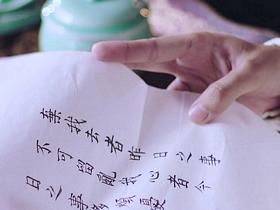 棄我去者昨日之事
不可留亂我心者今
日之事多煩憂